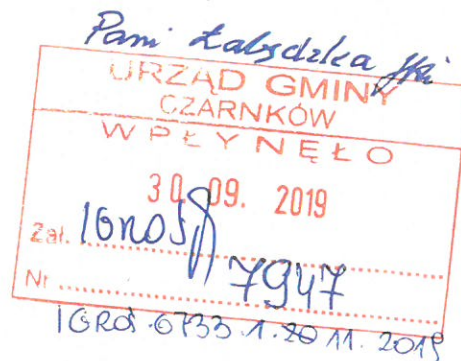 Pani
URZĄD GMINY
CZARNKÓW
WPŁYNĘŁO
30. 09. 2019
Zał. IGROŚ
Nr 7947
IGROŚ.6733.1.2011.2019